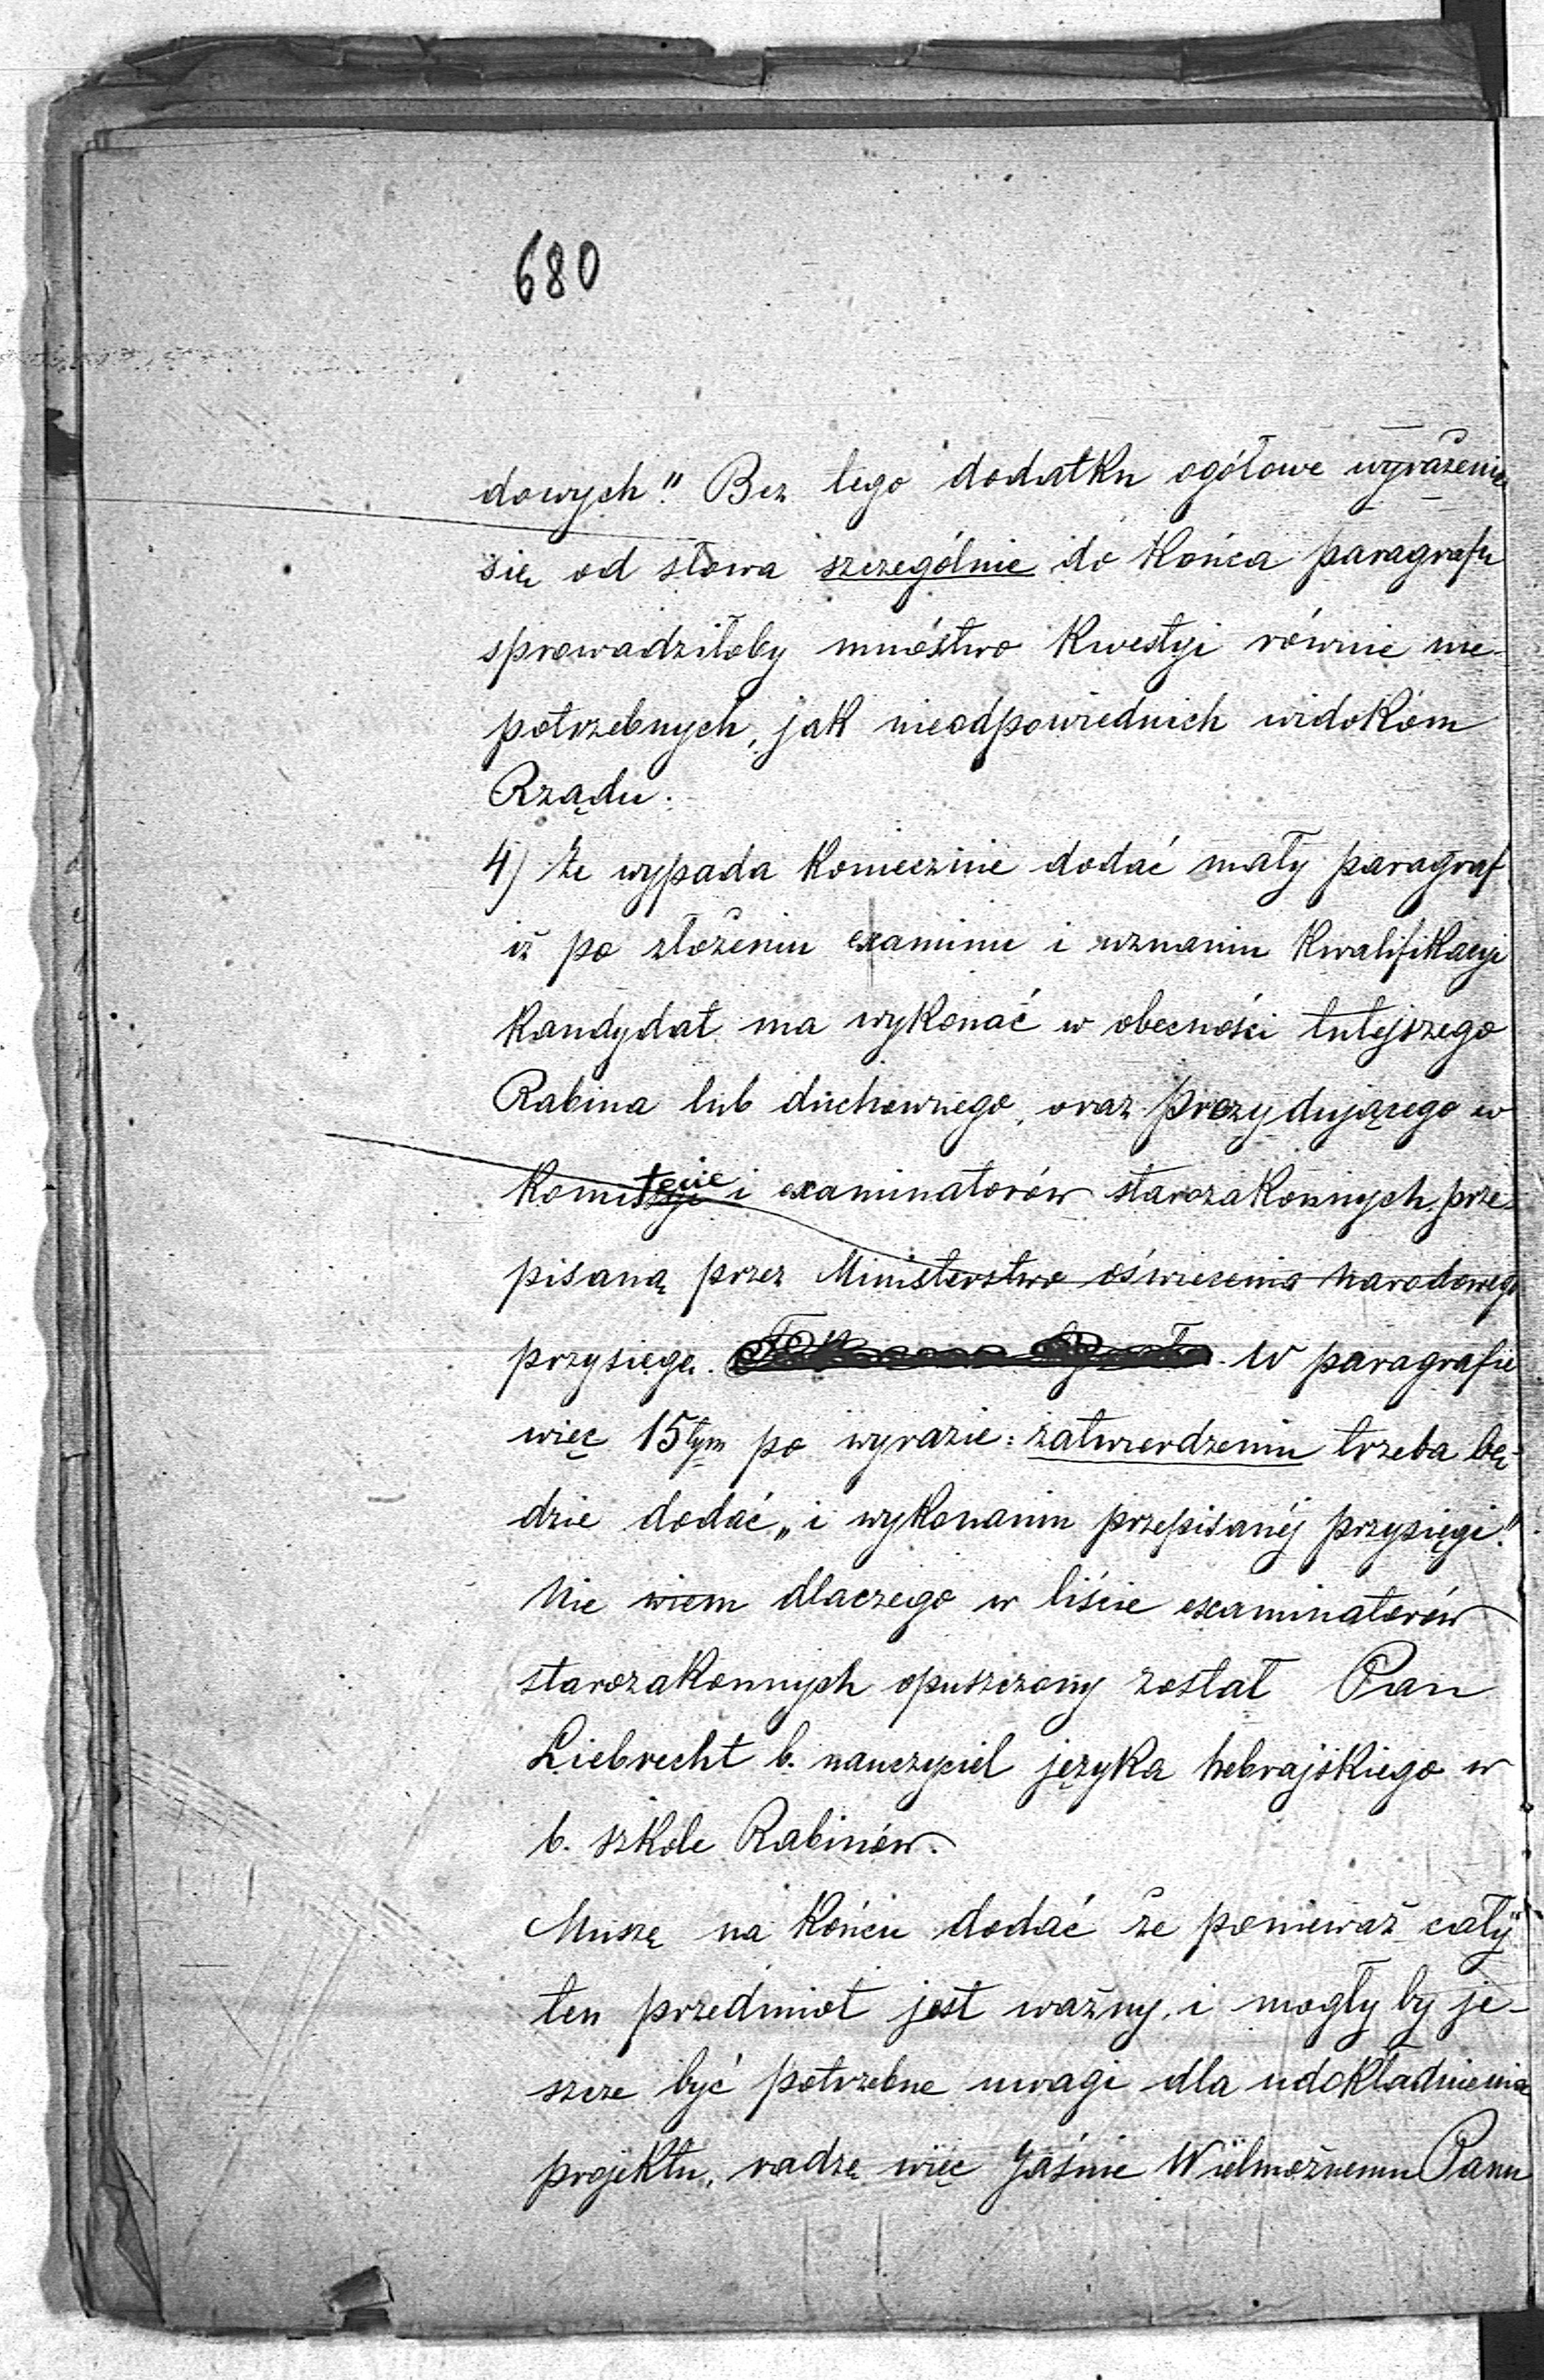 680
dowych." Bez tego dodatku ogółowe wyrażenie
się od słowa szczególnie do końca paragrafu
sprowadziłoby mnóstwo kwestyi równie nie-
potrzebnych, jak nieodpowiednich widokom
Rządu.
4) że wypada koniecznie dodać mały paragraf
iż po złożeniu examinu i uznaniu kwalifikacyi
kandydat ma wykonać w obecności tutejszego
Rabina lub duchownego, oraz prezydującego w
Komitecie i examinatorów starozakonnych, prze-
pisaną przez Ministerstwo oświecenia narodowego
przysięgę. W paragrafie
więc 15tym po wyrazie: zatwierdzeniu trzeba bę-
dzie dodać „i wykonaniu przepisanéj przysięgi."
Nie wiem dlaczego w liście examinatorów
starozakonnych opuszczony został Pan
Liebrecht b. nauczyciel języka hebrajskiego w
b. szkole Rabinów.
Muszę na końcu dodać że ponieważ cały
ten przedmiot jest ważny, i mogły by je-
szcze być potrzebne uwagi dla udokładnienia
projektu, radzę więc Jaśnie Wielmożnemu Panu